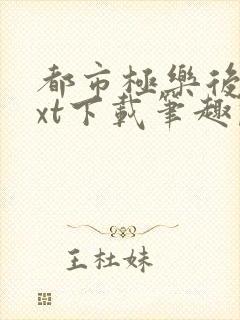 都市極樂後
xt下載筆趣
王杜妹